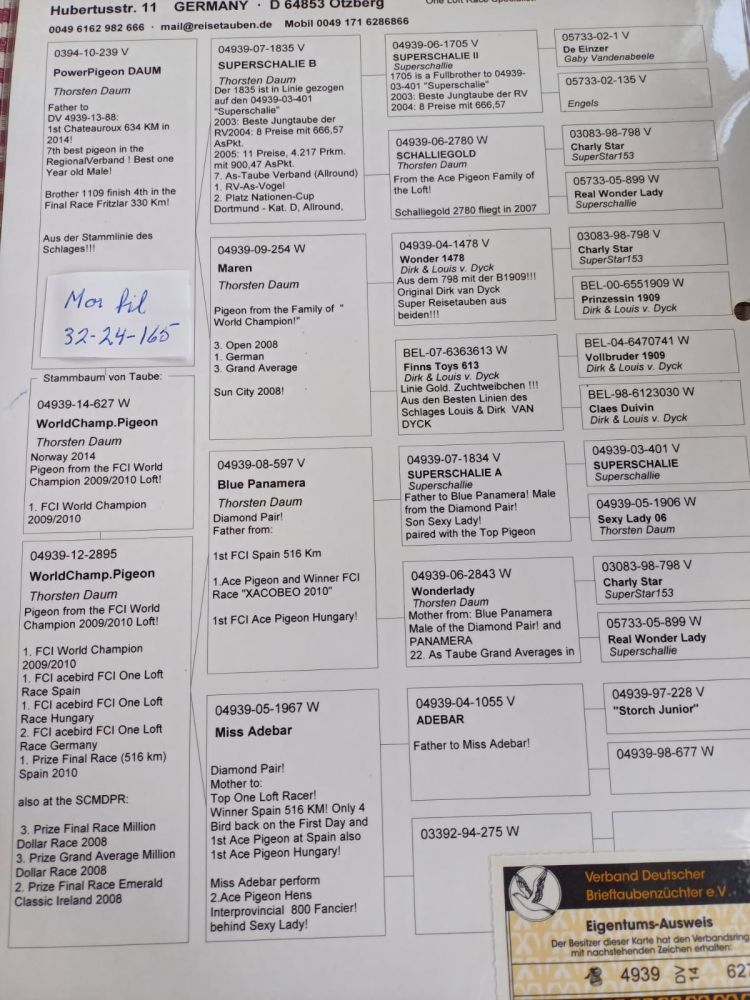 Hubertusstr. 11 GERMANY · D 64853 Otzberg
One Loft Race Specialist.
0049 6162 982 666 · mail@reisetauben.de Mobil 0049 171 6286866
0394-10-239 V
PowerPigeon DAUM
Thorsten Daum
Father to
DV 4939-13-88:
1st Chateauroux 634 KM in
2014!
7th best pigeon in the
RegionalVerband ! Best one
Year old Male!
Brother 1109 finish 4th in the
Final Race Fritzlar 330 Km!
Aus der Stammlinie des
Schlages!!!
Mor fil
32-24-165
Stammbaum von Taube:
04939-14-627 W
WorldChamp.Pigeon
Thorsten Daum
Norway 2014
Pigeon from the FCI World
Champion 2009/2010 Loft!
1. FCI World Champion
2009/2010
04939-12-2895
WorldChamp.Pigeon
Thorsten Daum
Pigeon from the FCI World
Champion 2009/2010 Loft!
1. FCI World Champion
2009/2010
1. FCI acebird FCI One Loft
Race Spain
1. FCI acebird FCI One Loft
Race Hungary
2. FCI acebird FCI One Loft
Race Germany
1. Prize Final Race (516 km)
Spain 2010
also at the SCMDPR:
3. Prize Final Race Million
Dollar Race 2008
3. Prize Grand Average Million
Dollar Race 2008
2. Prize Final Race Emerald
Classic Ireland 2008
04939-07-1835 V
SUPERSCHALIE B
Thorsten Daum
Der 1835 ist in Linie gezogen
auf den 04939-03-401
"Superschalie"
2003: Beste Jungtaube der
RV2004: 8 Preise mit 666,57
AsPkt.
2005: 11 Preise, 4.217 Prkm.
mit 900,47 AsPkt.
7. As-Taube Verband (Allround)
1. RV-As-Vogel
2. Platz Nationen-Cup
Dortmund - Kat. D, Allround,
04939-09-254 W
Maren
Thorsten Daum
Pigeon from the Family of "
World Champion!"
3. Open 2008
1. German
3. Grand Average
Sun City 2008!
04939-08-597 V
Blue Panamera
Thorsten Daum
Diamond Pair!
Father from:
1st FCI Spain 516 Km
1.Ace Pigeon and Winner FCI
Race "XACOBEO 2010"
1st FCI Ace Pigeon Hungary!
04939-05-1967 W
Miss Adebar
Diamond Pair!
Mother to:
Top One Loft Racer!
Winner Spain 516 KM! Only 4
Bird back on the First Day and
1st Ace Pigeon at Spain also
1st Ace Pigeon Hungary!
Miss Adebar perform
2.Ace Pigeon Hens
Interprovincial 800 Fancier!
behind Sexy Lady!
04939-06-1705 V
SUPERSCHALIE II
Superschallie
1705 is a Fullbrother to 04939-
03-401 "Superschalie"
2003: Beste Jungtaube der RV
2004: 8 Preise mit 666,57
04939-06-2780 W
SCHALLIEGOLD
Thorsten Daum
From the Ace Pigeon Family of
the Loft!
Schalliegold 2780 fliegt in 2007
04939-04-1478 V
Wonder 1478
Dirk & Louis v. Dyck
Aus dem 798 mit der B1909!!!
Original Dirk van Dyck
Super Reisetauben aus
beiden!!!
BEL-07-6363613 W
Finns Toys 613
Dirk & Louis v. Dyck
Linie Gold. Zuchtweibchen !!!
Aus den Besten Linien des
Schlages Louis & Dirk VAN
DYCK
04939-07-1834 V
SUPERSCHALIE A
Superschallie
Father to Blue Panamera! Male
from the Diamond Pair!
Son Sexy Lady!
paired with the Top Pigeon
04939-06-2843 W
Wonderlady
Thorsten Daum
Mother from: Blue Panamera
Male of the Diamond Pair! and
PANAMERA
22. As Taube Grand Averages in
04939-04-1055 V
ADEBAR
Father to Miss Adebar!
03392-94-275 W
05733-02-1 V
De Einzer
Gaby Vandenabeele
05733-02-135 V
Engels
03083-98-798 V
Charly Star
SuperStar153
05733-05-899 W
Real Wonder Lady
Superschallie
03083-98-798 V
Charly Star
SuperStar153
BEL-00-6551909 W
Prinzessin 1909
Dirk & Louis v. Dyck
BEL-04-6470741 W
Vollbruder 1909
Dirk & Louis v. Dyck
BEL-98-6123030 W
Claes Duivin
Dirk & Louis v. Dyck
04939-03-401 V
SUPERSCHALIE
Superschallie
04939-05-1906 W
Sexy Lady 06
Thorsten Daum
03083-98-798 V
Charly Star
SuperStar153
05733-05-899 W
Real Wonder Lady
Superschallie
04939-97-228 V
"Storch Junior"
04939-98-677 W
Verband Deutscher
Brieftaubenzüchter e.V.
Eigentums-Ausweis
Der Besitzer dieser Karte hat den Verbandsring
mit nachstehenden Zeichen erhalten:
4939 DV 14 627